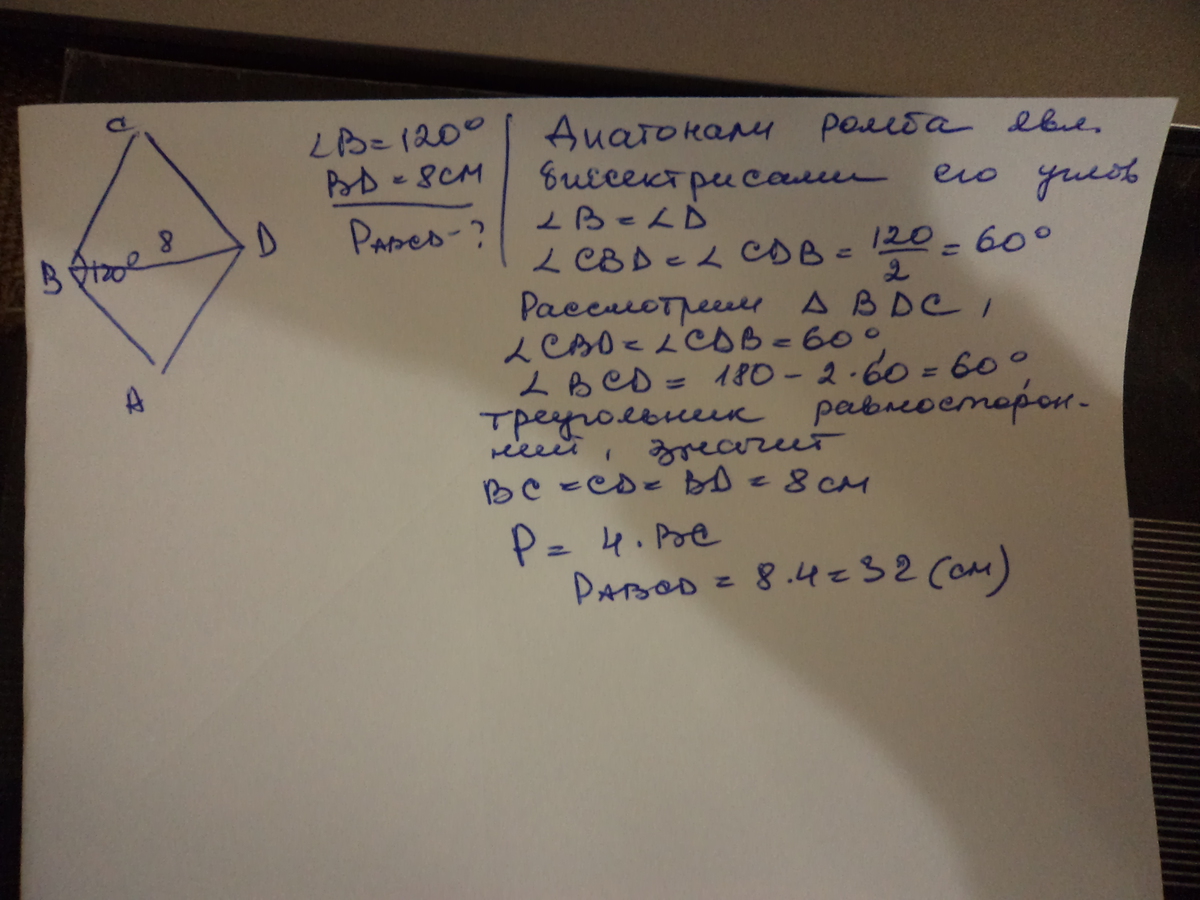 C
B
120°
8
D
A
∠B = 120°
BD = 8 см
PABCD - ?
Диагонали ромба явл.
биссектрисами его углов
∠B = ∠D
∠CBD = ∠CDB = 120/2 = 60°
Рассмотрим Δ BDC,
∠CBD = ∠CDB = 60°,
∠BCD = 180 - 2·60 = 60°,
треугольник равносторон-
ний, значит
BC = CD = BD = 8 см
P = 4·BC
PABCD = 8·4 = 32 (см)